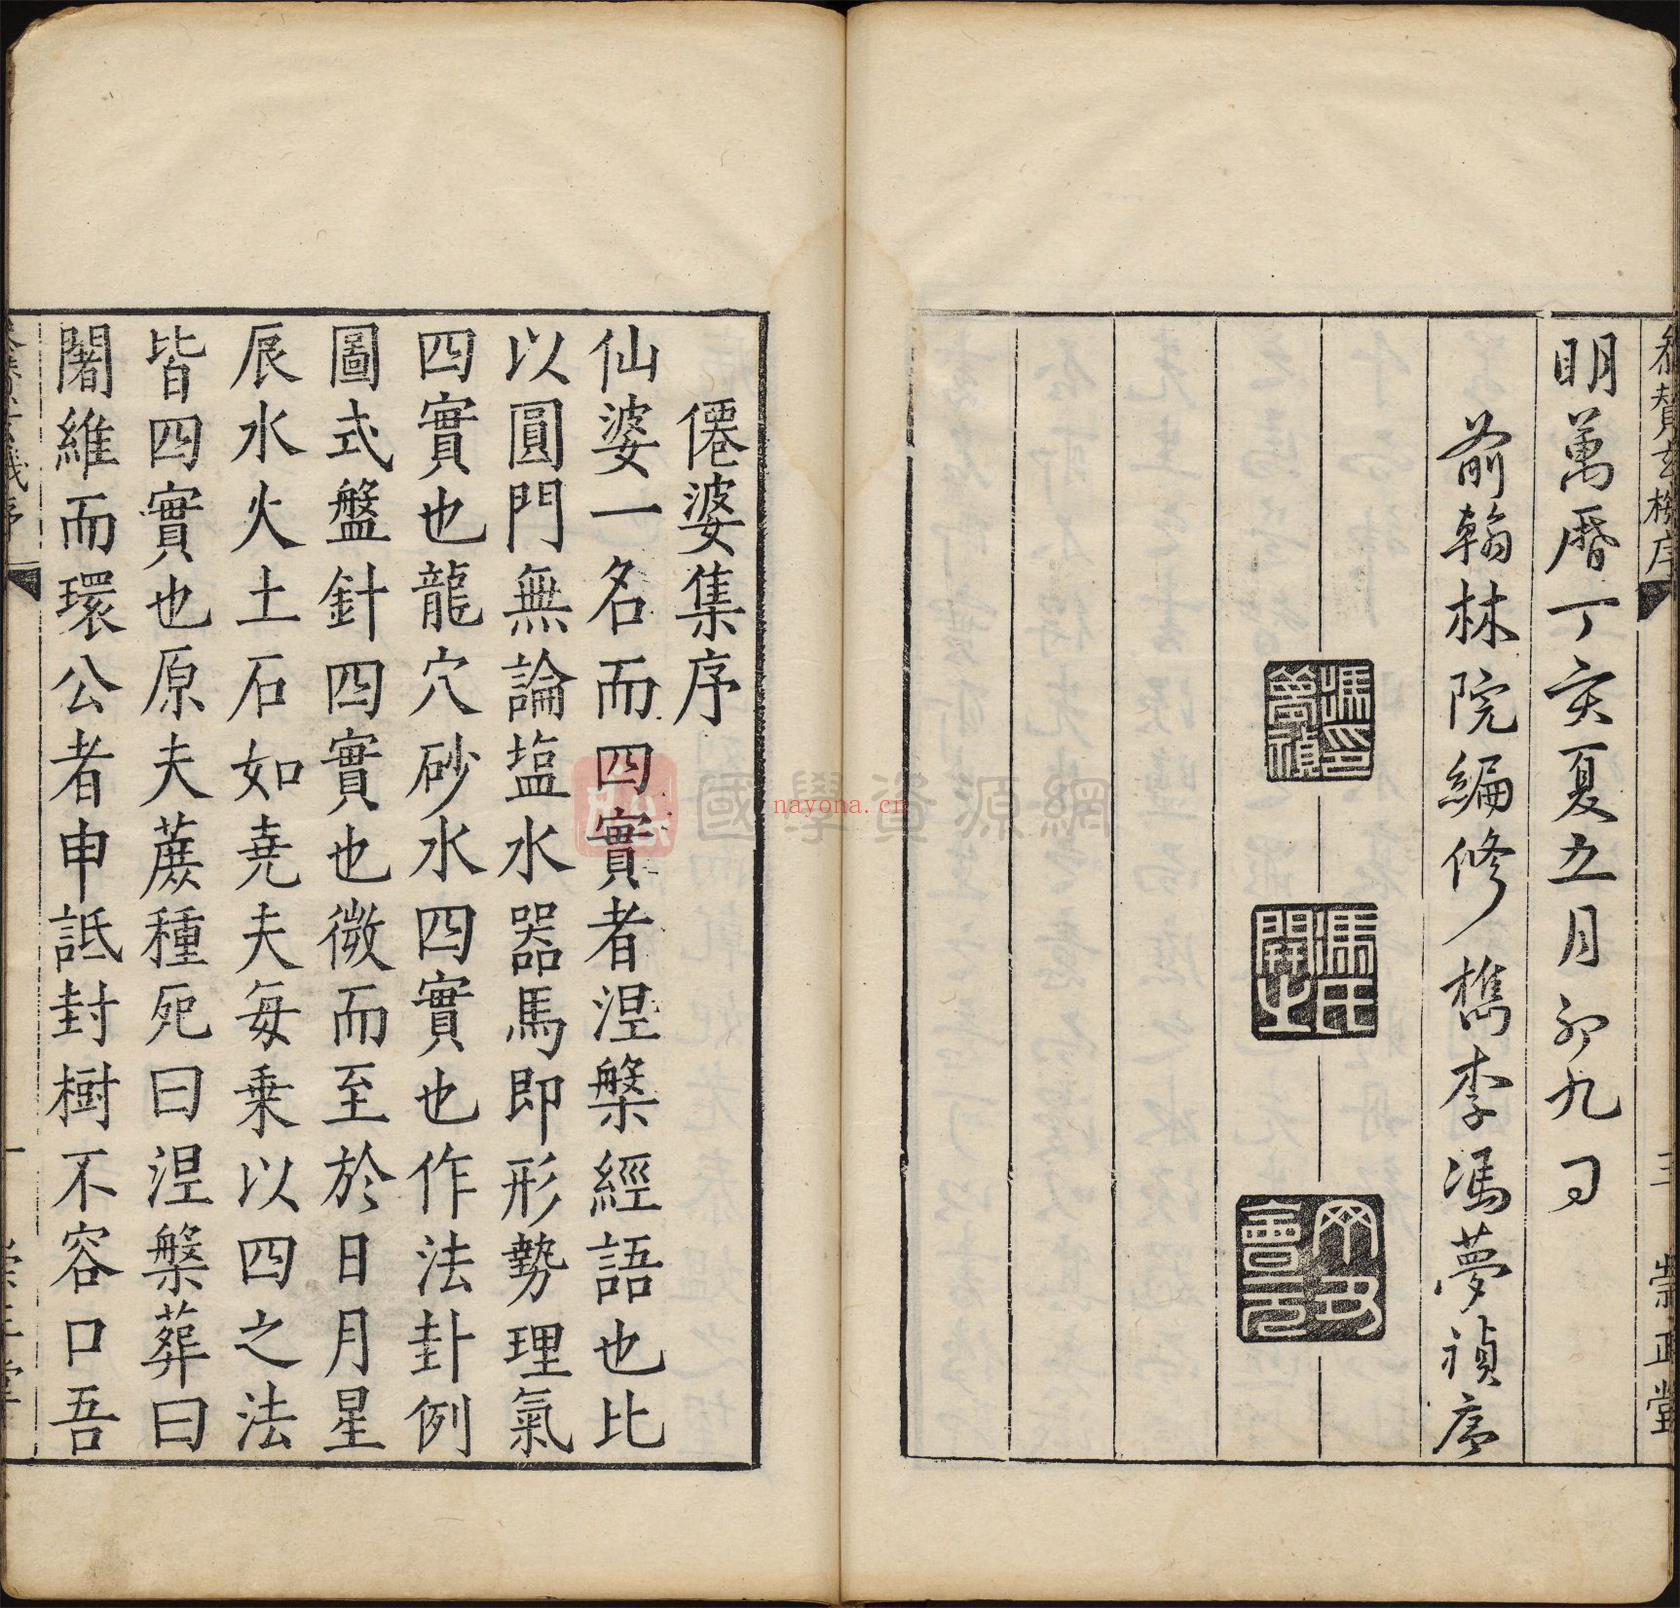 參贊玄機序
三
崇正堂
明萬曆丁亥夏五月初九日
前翰林院編修檇李馮夢禎序
馮夢禎印
馮氏開之
丁丑會元
僊婆集序
仙婆一名而四實者涅槃經語也比
以圓門無論塩水器馬即形勢理氣
四實也龍穴砂水四實也作法卦例
圖式盤針四實也微而至於日月星
辰水火土石如堯夫每乗以四之法
皆四實也原夫蔗種死曰涅槃葬曰
闍維而環公者申詆封樹不容口吾
一
國學資源網
nayona.cn